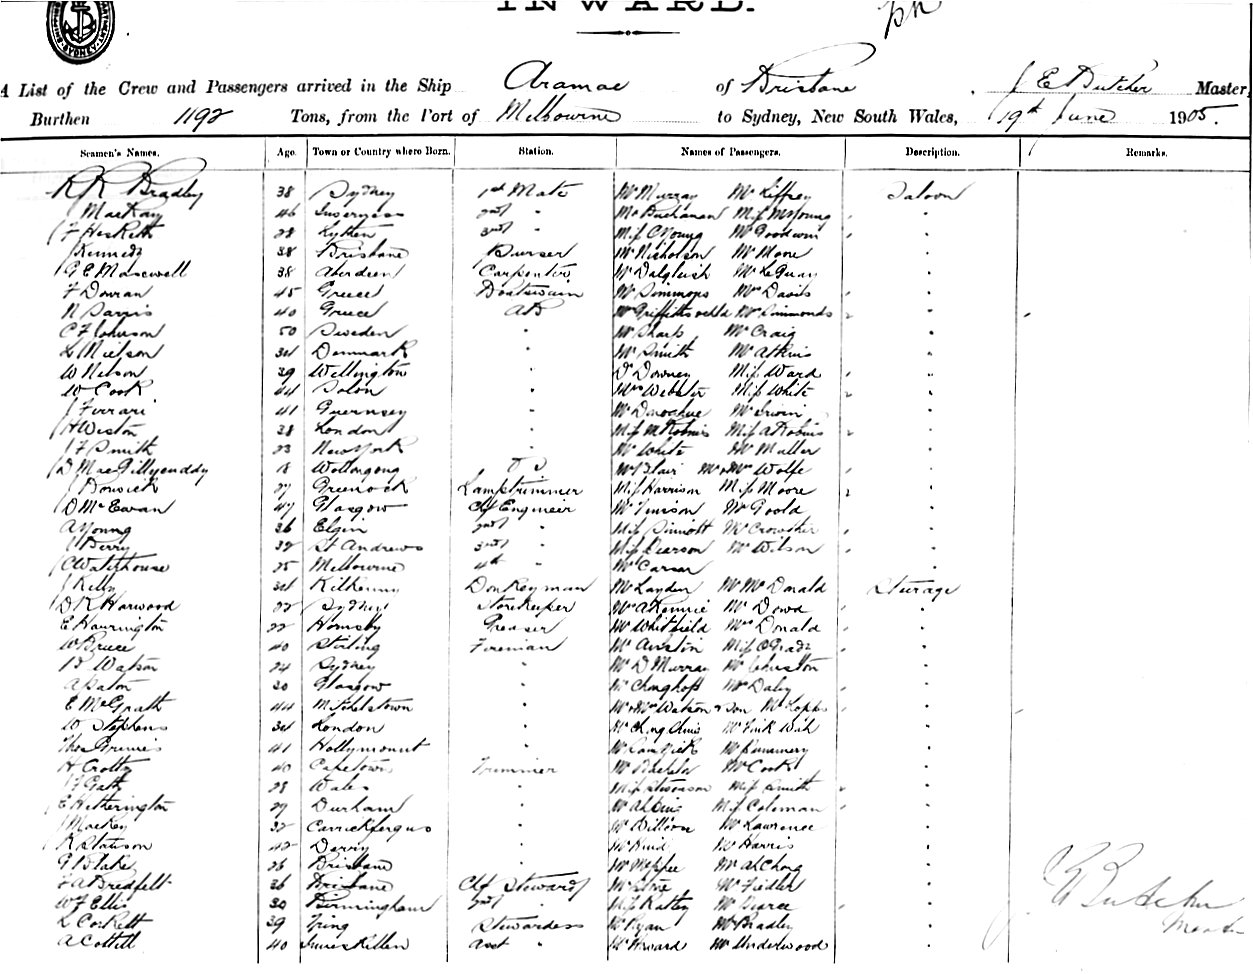 INWARD.
SYDNEY
A List of the Crew and Passengers arrived in the Ship Aramac of Brisbane J E Butcher Master,
Burthen 1192 Tons, from the Port of Melbourne to Sydney, New South Wales, 19th June 1905.
Seamen's Names. Age. Town or Country where Born. Station. Names of Passengers. Description. Remarks.
R R Bradley 38 Sydney 1st Mate Mr Murray Mr Liffrey Saloon
J MacKay 46 Inverness 2nd " Mr Buchanan Miss McYoung "
J F Hesketh 28 Lytton 3rd " Miss C Young Mr Goodwin "
J Kennedy 38 Brisbane Purser Mr Nicholson Mr Moore "
G E Maxwell 38 Aberdeen Carpenter Mr Dalgleish Mr LeGuay "
F Dowran 45 Greece Boatswain Mr Simmons Mrs Davis "
N Sarris 40 Greece AB Mr Griffiths & chld Mr Simmonds "
C F Johnson 50 Sweden " Mr Sharp Mr Craig "
L Nielson 34 Denmark " Mr Smith Mr Atkins "
W Nelson 39 Wellington " Dr Downey Miss Ward "
W Cook 44 Solon " Mrs Webster Miss White "
J Ferrari 41 Guernsey " Mr Donoghue Mr Irwin "
H Weston 38 London " Miss M Robins Miss A Robins "
J F Smith 23 New York " Mr White Mr Muller "
D MacGillycuddy 18 Wollongong OS Mr Blair Mr & Mrs Wolfe "
J Bowick 27 Greenock Lamptrimmer Miss Harrison Miss Moore "
D McEwan 47 Glasgow Chf Engineer Mr Goold "
A Young 36 Elgin 2nd " Miss Sinnott Mr Crowther "
J Berry 32 St Andrews 3rd " Miss Pearson Mr Wilson "
C Waterhouse 25 Melbourne 4th " Mr Carsar "
J Kelly 34 Kilkenny Donkeyman Mr Layden Mr McDonald Steerage
D R Harwood 22 Sydney Storekeeper Mr Dowd "
E Harrington 22 Hornsby Greaser Mr Whitfield Mrs Donald "
W Bruce 40 Stirling Fireman Mr Austin Miss O'Grady "
Watson 24 Sydney " Mr D Murray Mr Johnston "
A Paton 30 Glasgow " Mr Daly "
E McGrath 44 " Mr & Mrs Watson & Son "
W Stephens 34 London " "
41 Hollymount " "
H Crotty 40 Capetown Trimmer Mr Cook "
28 Wales " Miss Stevenson Miss Smith "
E Hetherington 27 Durham " Miss Coleman "
J Mackey 32 Carrickfergus " Mr Dillon Mr Lawrence "
R Stawson 42 Derry " Mr Harris "
G Blake 26 Brisbane " Mr Ah Chong "
F A Bredfelt 36 Brisbane Chf Steward Mr Stone Mr Fidler "
W F Ellis 30 Birmingham 2nd " Mr Pearce "
L Corkett 39 Tring Stewardess Mr Ryan Mr Bradley "
A Cottell 40 Inneskillen Asst " Mr Howard Mr Underwood "
J E Butcher
Master